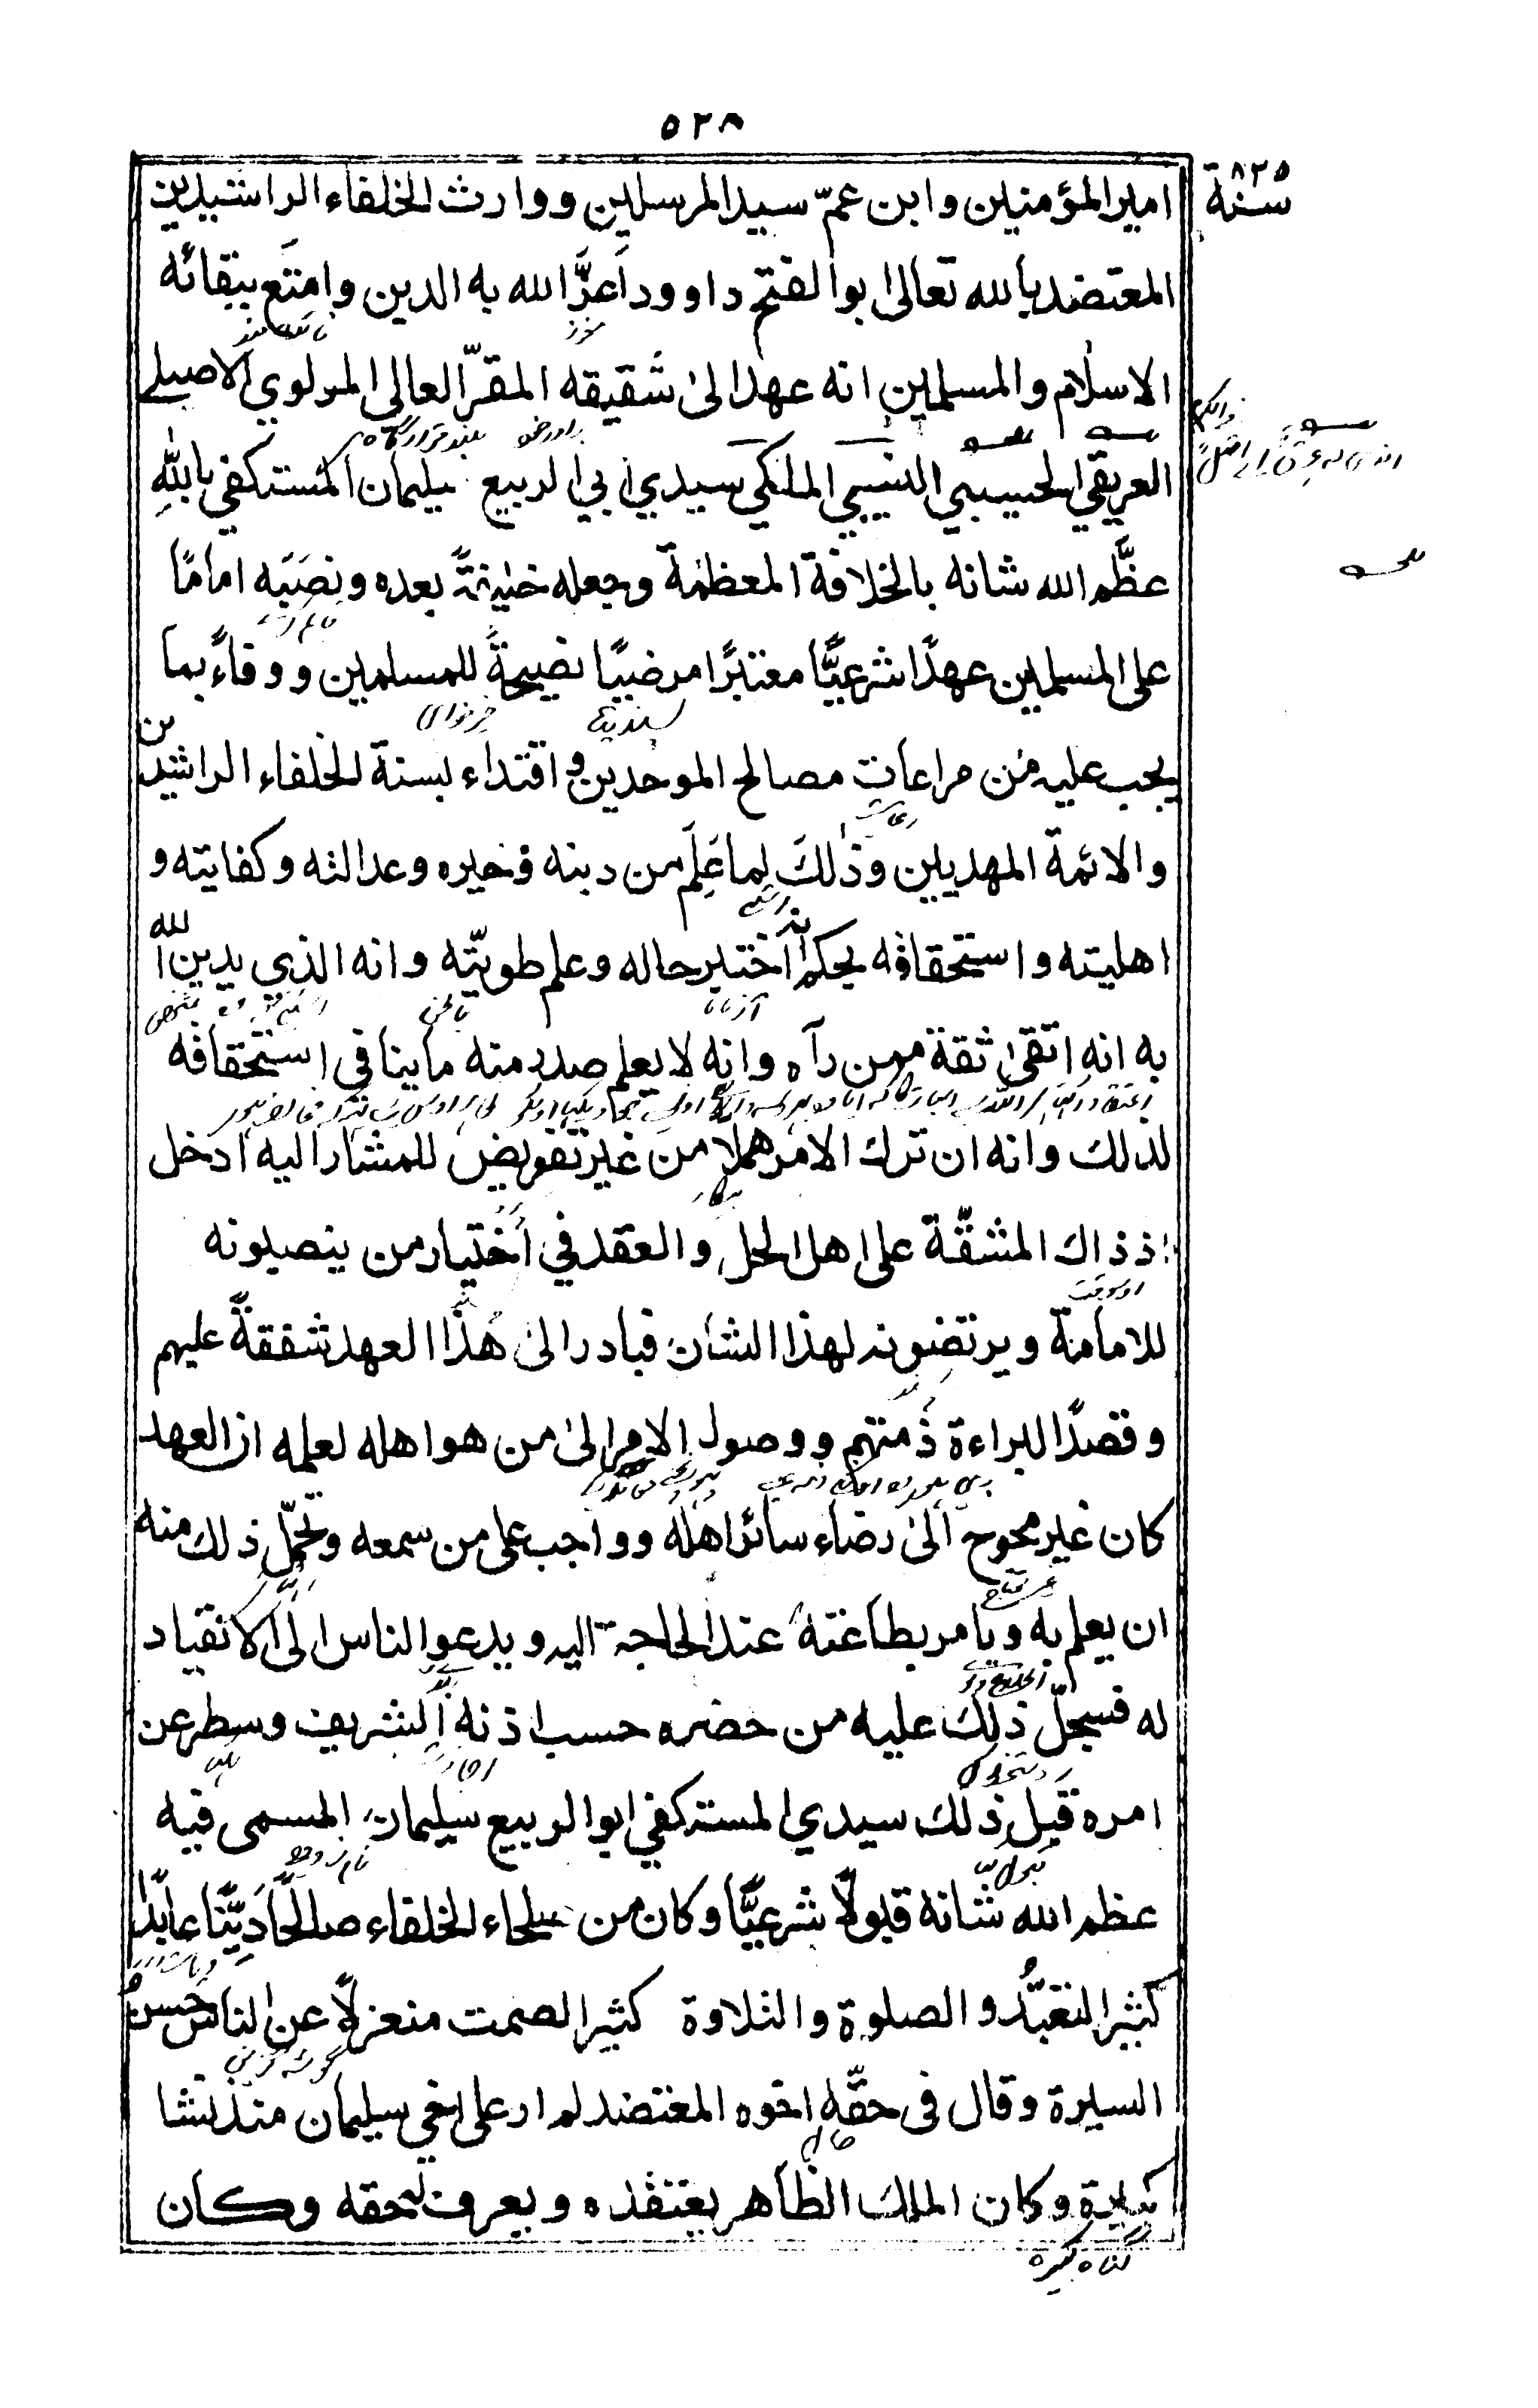 ٥٢٨
سنة ٨٢٥
امير المؤمنين وابن عمّ سيد المرسلين ووارث الخلفاء الراشيدين
المعتضد بالله تعالىٰ ابو الفتح داوود اَعزَّ الله به الدين وامتَع ببقائه
الاسلام والمسلمين انه عهد الىٰ شقيقه المقرّ العالي المولوي الاصيلي
العريقي الحسيبي النسيبي الملكي سيدي ابي الربيع سليمان المستكفي باللهِ
عظَّم الله شانه بالخلافة المعظمة وجعله خليفةً بعده ونصَبَه امامًا
على المسلمين عهدًا شرعيًّا معتبرًا مرضيًا نصيحةً للمسلمين ووفاءً بما
يجب عليه من مراعات مصالح الموحدين واقتداء بسنة الخلفاء الراشدين
والائمة المهديين وذٰلكَ لِما عَلِمَ من دينه وخيره وعدالته وكفايته و
اهليته واستحقاقه بحكم انه اختبر حاله وعلم طويّته وانه الذي يدين الله
به انه اتقىٰ ثقة ممن رآه وانه لا يعلم صدر منه ما ينافي استحقاقه
لذلك وانه ان ترك الامر هملا من غير تفويض للمشار اليه ادخل
اذ ذاك المشقّة على اهل الحل والعقد في اختيار من ينصبونه
للامامة ويرتضونه لهذا الشان فبادر الىٰ هٰذا العهد شفقةً عليهم
وقصدًا لبراءة ذمتهم ووصول الامر الىٰ من هو اهله لعلمه ان العهد
كان غير محوج الىٰ رضاء سائر اهله وواجب على من سمعه وتحمّل ذلك منه
ان يعلم به ويامر بطاعته عند الحاجة اليه ويدعو الناس الى الانقياد
له فسجلّ ذلك عليه من حضره حسب اذنه الشريف وسطر عن
امره قبل ذلك سيدي المستكفي ابو الربيع سليمان المسمى فيه
عظم الله شانه قبولًا شرعيًّا وكان من صلحاء الخلفاء صالحًا دَيِّنًا عابدًا
كثير التعبُّد والصلوة والتلاوة كثير الصمت منعزلًا عن الناس حسنُ
السيرة وقال فى حقّه اخوه المعتضد لم ار على اخي سليمان منذ نشا
كبيرة وكان الملك الظاهر يعتقده ويعرف له حقه وكان
گناه كبيره